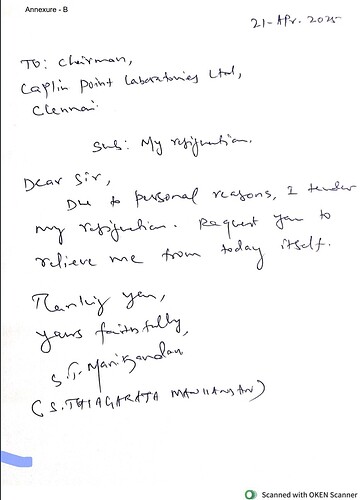 Annexure - B
21-Apr. 2025
To: Chairman,
Caplin Point Laboratories Ltd,
Chennai.
Sub: My resignation.
Dear Sir,
Due to personal reasons, I tender
my resignation. Request you to
relieve me from today itself.
Thanking you,
yours faithfully,
S.T. Manikandan
(S. THIAGARAJA MANIKANDAN)
Scanned with OKEN Scanner